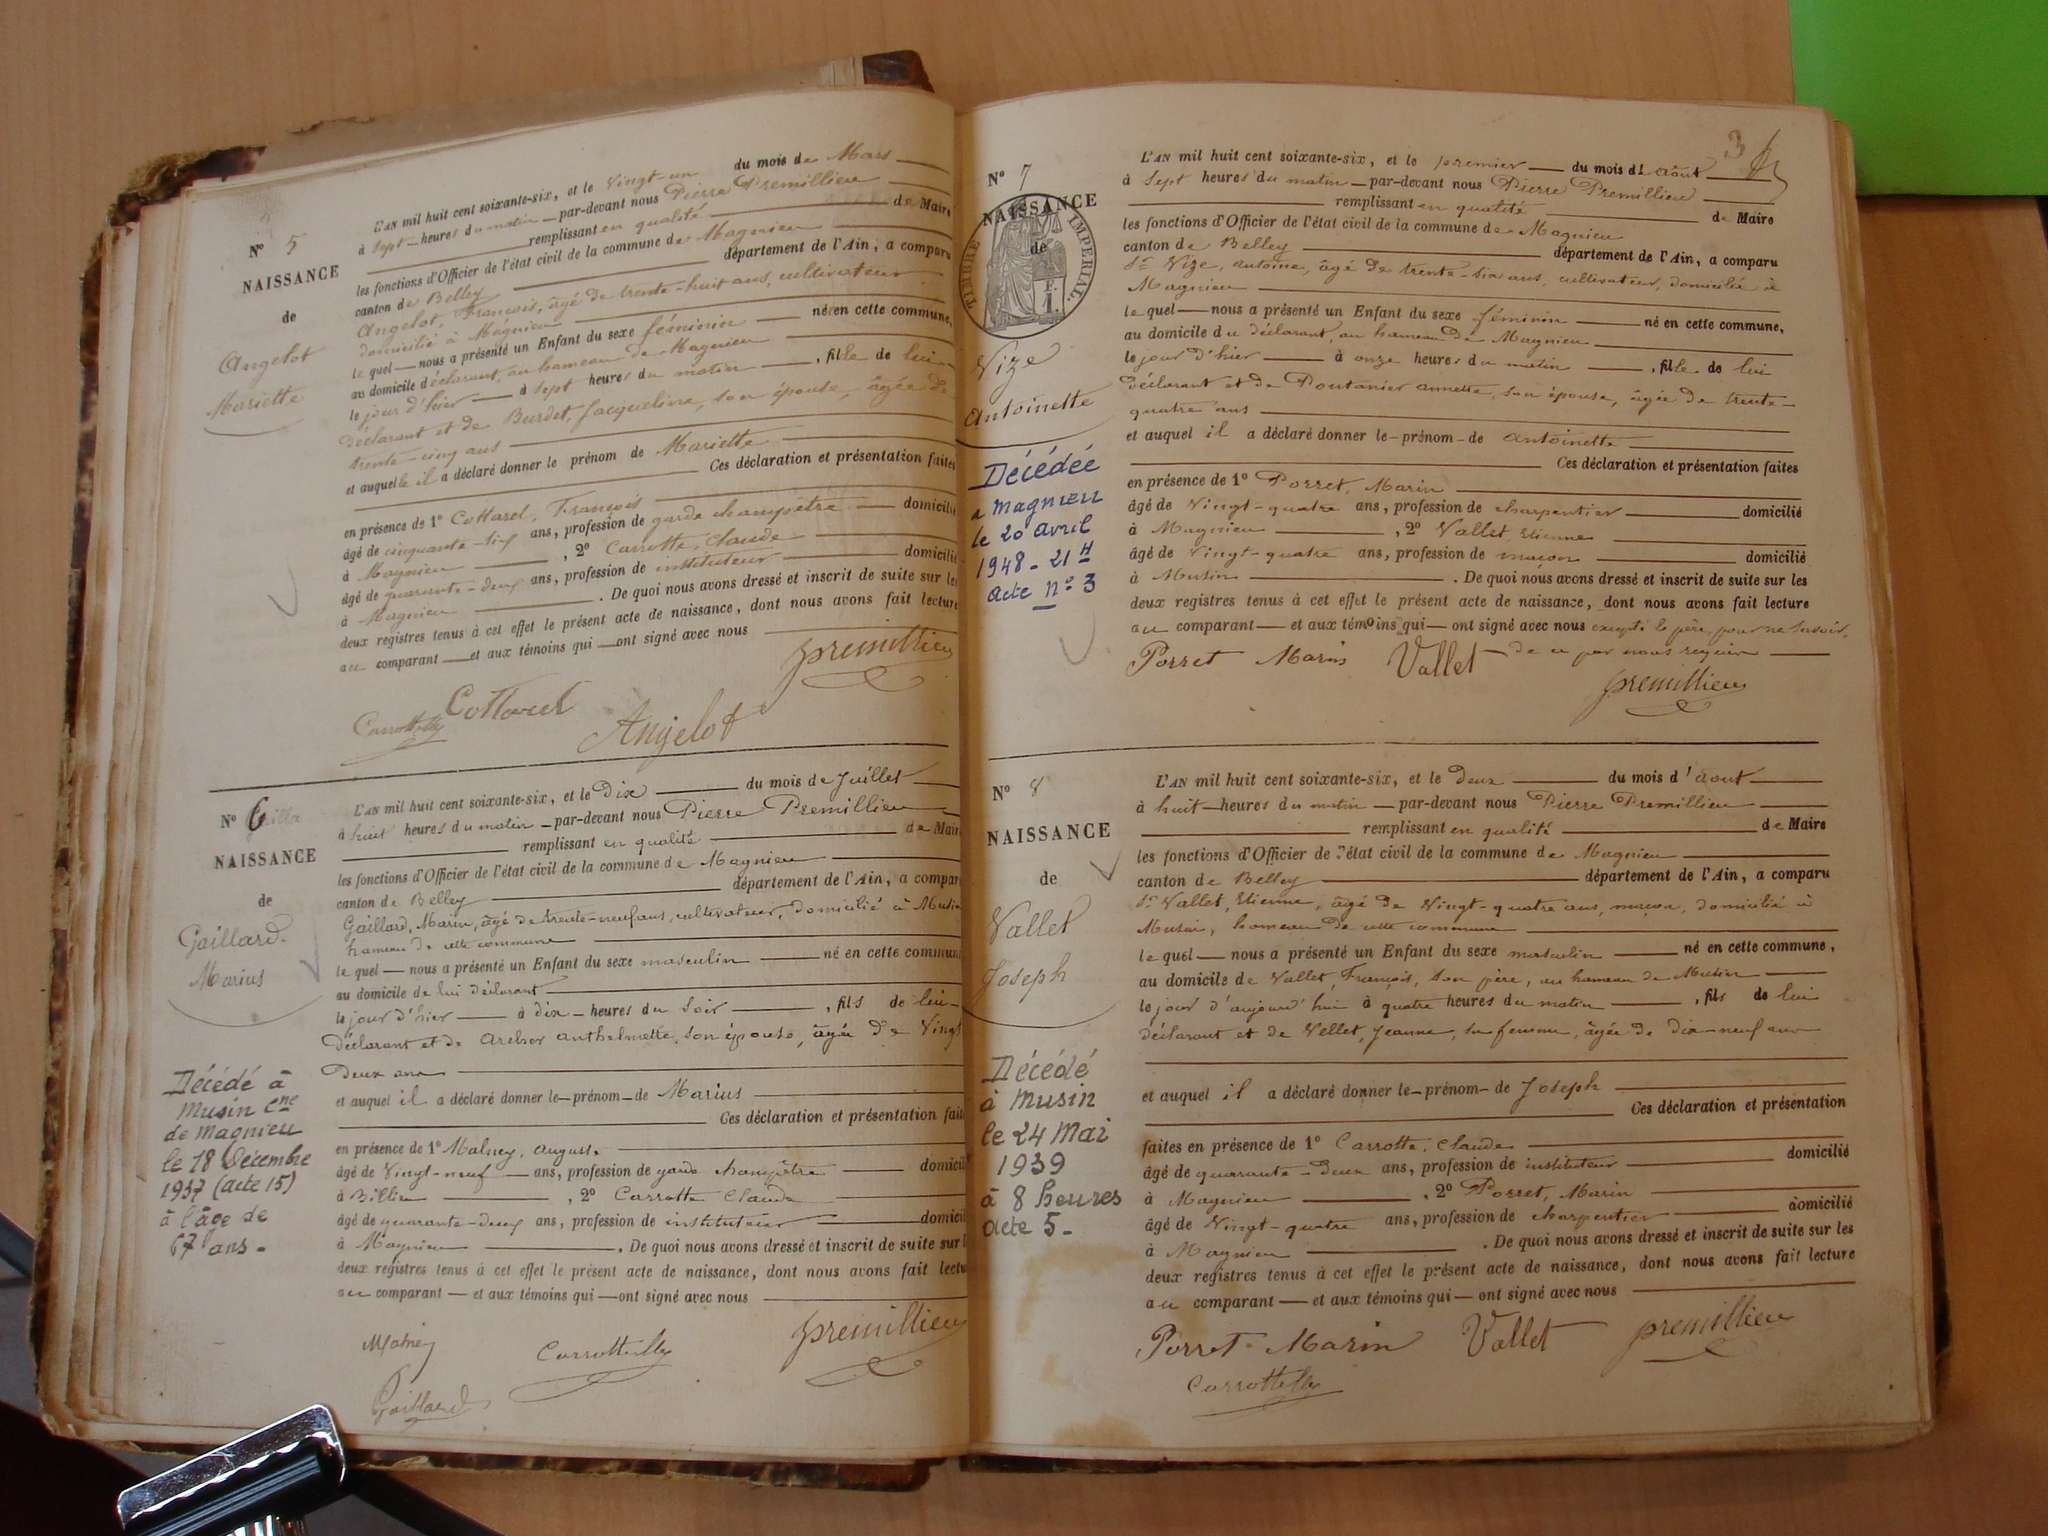 N° 5
NAISSANCE
de
Angelot
Mariette
L'AN mil huit cent soixante-six, et le vingt-un du mois de Mars
à sept heures du matin par-devant nous Pierre Premillieu
remplissant en qualité de Maire
les fonctions d'Officier de l'état civil de la commune de Magnieu
canton de Belley département de l'Ain, a comparu
Angelot, François, âgé de trente-huit ans, cultivateur
domicilié à Magnieu
le quel nous a présenté un Enfant du sexe féminin né en cette commune,
au domicile déclarant, au hameau de Magnieu
le jour d'hier à sept heures du matin, fille de lui
déclarant et de Burdet, Jacqueline, son épouse, âgée de
trente-cinq ans
et auquelle il a déclaré donner le prénom de Mariette
Ces déclaration et présentation faites
en présence de 1° Cottarel, François
âgé de cinquante-six ans, profession de garde champêtre domicilié
à Magnieu, 2° Carrotte, Claude
âgé de quarante-deux ans, profession de instituteur domicilié
à Magnieu. De quoi nous avons dressé et inscrit de suite sur les
deux registres tenus à cet effet le présent acte de naissance, dont nous avons fait lecture
au comparant et aux témoins qui ont signé avec nous
premillieu
Cottarel
Angelot
N° 6
NAISSANCE
de
Gaillard
Marius
Décédé à
Musin Cne
de Magnieu
le 18 Décembre
1937 (acte 15)
à l'âge de
67 ans.
L'AN mil huit cent soixante-six, et le Dix du mois de Juillet
à huit heures du matin par-devant nous Pierre Premillieu
remplissant en qualité de Mair
les fonctions d'Officier de l'état civil de la commune de Magnieu
canton de Belley département de l'Ain, a compar
Gaillard, Marin, âgé de trente-neuf ans, cultivateur, domicilié à Musin
hameau de cette commune
le quel nous a présenté un Enfant du sexe masculin né en cette commun
au domicile de lui déclarant
le jour d'hier à dix heures du soir, fils de lui
déclarant et de anthelmette, son épouse, âgée de Vingt
Deux ans
et auquel il a déclaré donner le prénom de Marius
Ces déclaration et présentation fait
en présence de 1° Malney, august
âgé de Vingt-neuf ans, profession de garde champêtre domicil
à Billieu, 2° Carrotte Claude
âgé de quarante-deux ans, profession de instituteur domicil
à Magnieu. De quoi nous avons dressé et inscrit de suite sur l
deux registres tenus à cet effet le présent acte de naissance, dont nous avons fait lectu
au comparant et aux témoins qui ont signé avec nous
premillieu
Gaillard
3
N° 7
NAISSANCE
de
TIMBRE IMPERIAL
F.
1.
Vize
Antoinette
Décédée
a Magnieu
le 20 avril
1948 - 21 H
acte n° 3
L'AN mil huit cent soixante-six, et le premier du mois d'août
à sept heures du matin par-devant nous Pierre Premillieu
remplissant en qualité de Maire
les fonctions d'Officier de l'état civil de la commune de Magnieu
canton de Belley département de l'Ain, a comparu
Sr Vize, antoine, âgé de trente-six ans, cultivateur, domicilié à
Magnieu
le quel nous a présenté un Enfant du sexe féminin né en cette commune,
au domicile du déclarant, au hameau de Magnieu
le jour d'hier à onze heures du matin, fille de lui
déclarant et de Pontanier annette, son épouse, âgée de trente-
quatre ans
et auquel il a déclaré donner le prénom de antoinette
Ces déclaration et présentation faites
en présence de 1° Porret, Marin
âgé de Vingt-quatre ans, profession de charpentier domicilié
à Magnieu, 2° Vallet, Etienne
âgé de Vingt-quatre ans, profession de maçon domicilié
à Musin. De quoi nous avons dressé et inscrit de suite sur les
deux registres tenus à cet effet le présent acte de naissance, dont nous avons fait lecture
au comparant et aux témoins qui ont signé avec nous excepté le père, pour ne savoir,
de ce par nous requis
Porret Marin Vallet
premillieu
N° 8
NAISSANCE
de
Vallet
Joseph
Décédé
à Musin
le 24 Mai
1939
à 8 heures
acte 5.
L'AN mil huit cent soixante-six, et le Deux du mois d'aout
à huit heures du matin par-devant nous Pierre Premillieu
remplissant en qualité de Maire
les fonctions d'Officier de l'état civil de la commune de Magnieu
canton de Belley département de l'Ain, a comparu
Sr Vallet, Etienne, âgé de Vingt-quatre ans, maçon, domicilié à
Musin, hameau de cette commune
le quel nous a présenté un Enfant du sexe masculin né en cette commune,
au domicile de Vallet, François, son père, au hameau de Musin
le jour d'aujourd'hui à quatre heures du matin, fils de lui
déclarant et de Vellet, Jeanne, sa femme, âgée de dix-neuf ans
et auquel il a déclaré donner le prénom de Joseph
Ces déclaration et présentation
faites en présence de 1° Carrotte, Claude
âgé de quarante-deux ans, profession de instituteur domicilié
à Magnieu, 2° Porret, Marin
âgé de Vingt-quatre ans, profession de charpentier domicilié
à Magnieu. De quoi nous avons dressé et inscrit de suite sur les
deux registres tenus à cet effet le présent acte de naissance, dont nous avons fait lecture
au comparant et aux témoins qui ont signé avec nous
Porret Marin Vallet premillieu